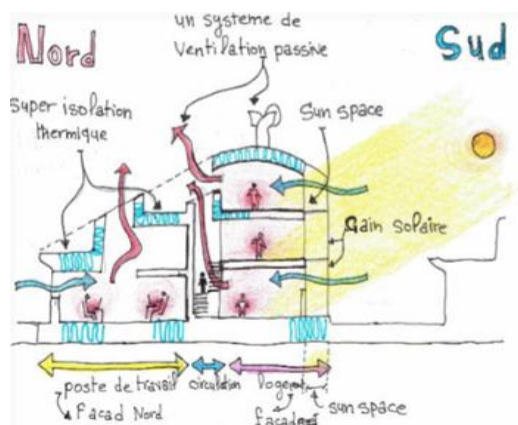 un système de
ventilation passive
Nord
Sud
super isolation
thermique
Sun space
Gain solaire
poste de travail
circulation
logement
Facad Nord
sun space